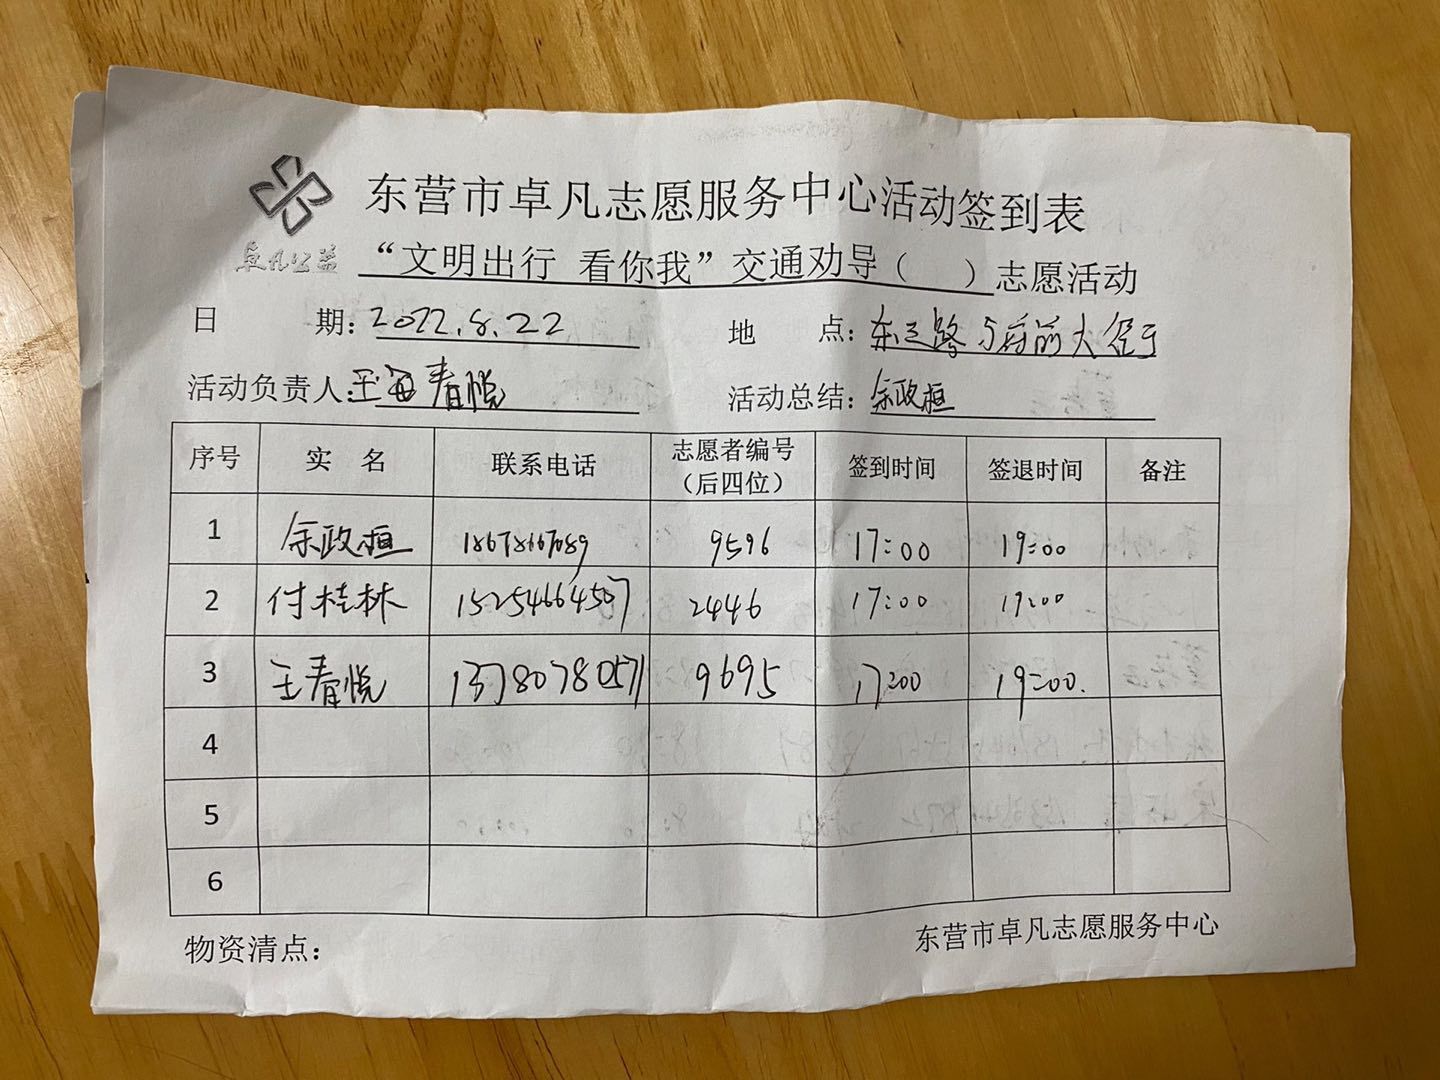 东营市卓凡志愿服务中心活动签到表
卓凡公益
“文明出行 看你我”交通劝导（ ）志愿活动
日 期：2022.8.22 地 点：东三路与府前大街
活动负责人：王春悦 活动总结：余政桓
序号 实 名 联系电话 志愿者编号（后四位） 签到时间 签退时间 备注
1 余政桓 18678667089 9596 17:00 19:00
2 付桂林 15254664507 2446 17:00 19:00
3 王春悦 13780780571 9695 17:00 19:00.
4
5
6
物资清点： 东营市卓凡志愿服务中心